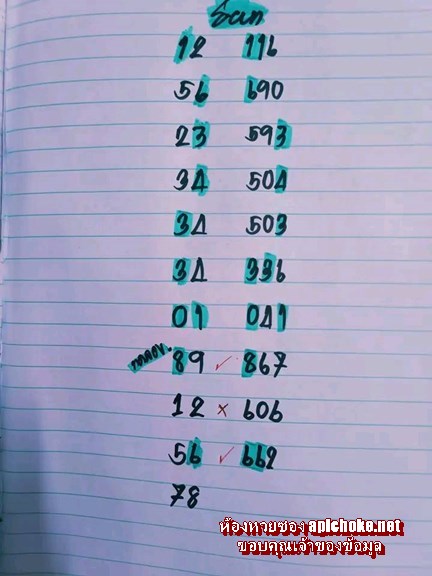 12 116
56 690
23 593
34 504
34 503
34 336
01 041
89 ✓ 867
12 × 606
56 ✓ 662
78
ห้องหวยซอง apichoke.net
ขอบคุณเจ้าของข้อมูล